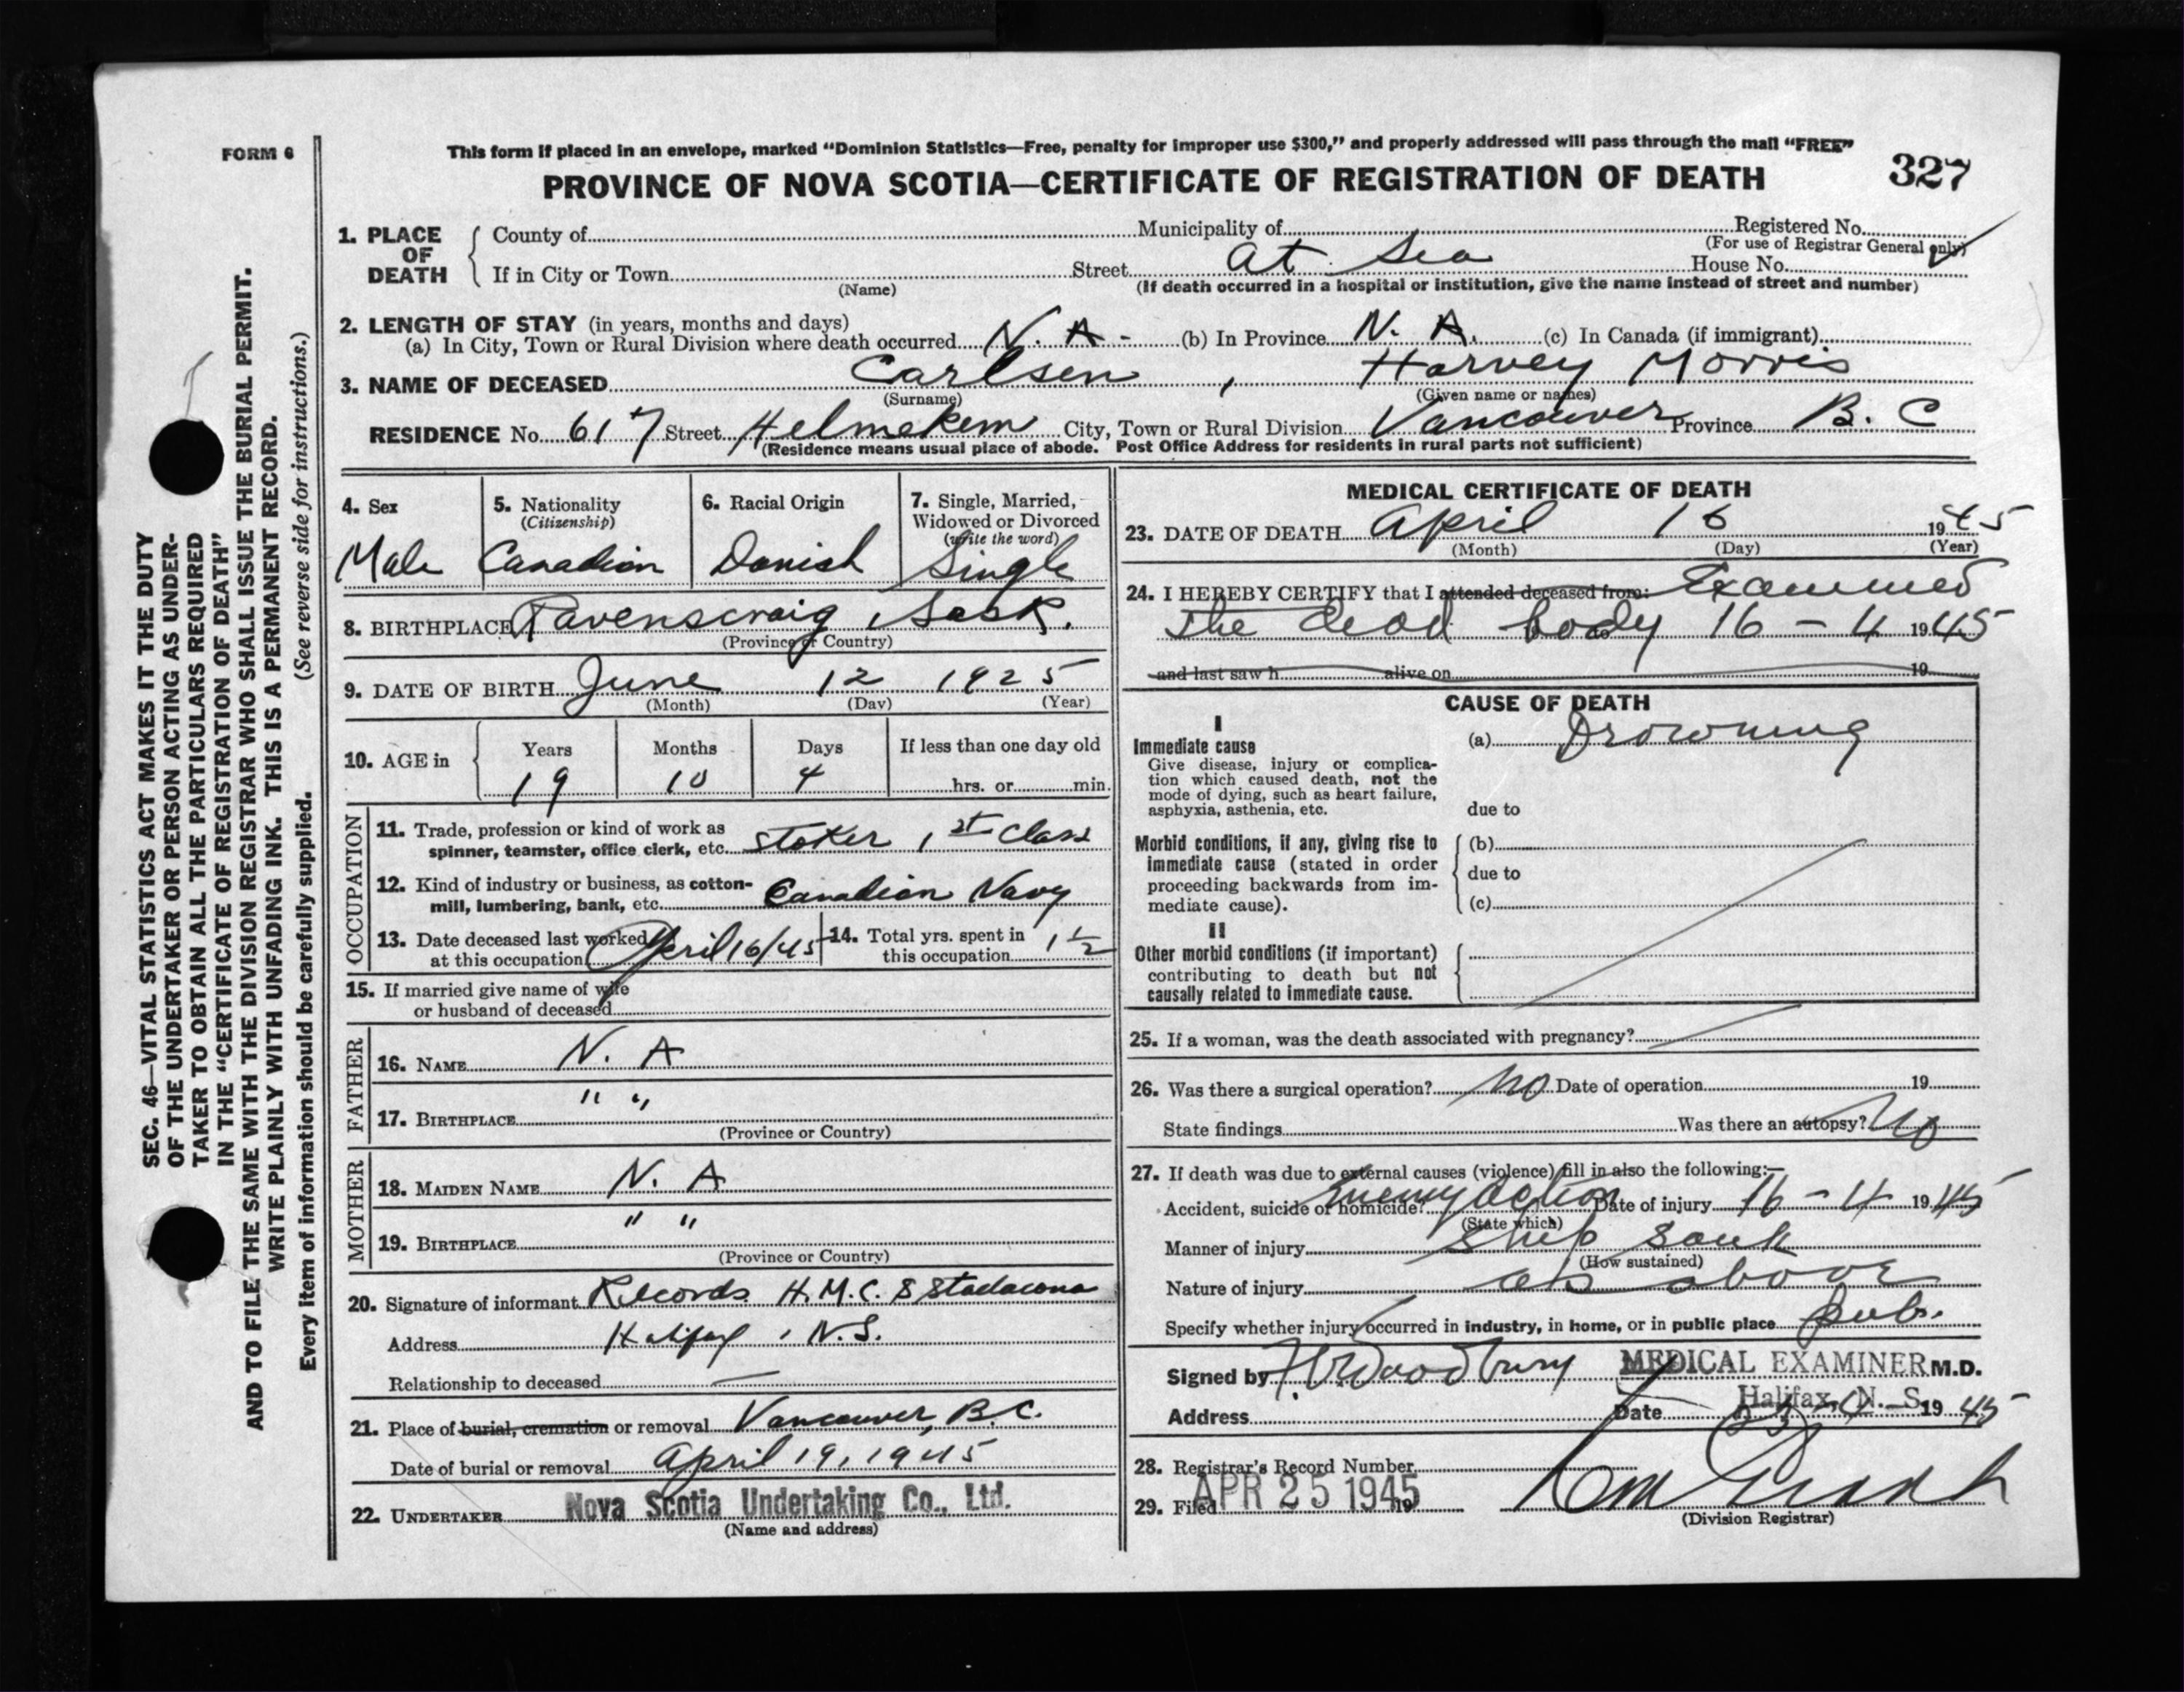 FORM 6
This form if placed in an envelope, marked “Dominion Statistics—Free, penalty for improper use $300,” and properly addressed will pass through the mail “FREE”
327
PROVINCE OF NOVA SCOTIA—CERTIFICATE OF REGISTRATION OF DEATH
SEC. 46—VITAL STATISTICS ACT MAKES IT THE DUTY
OF THE UNDERTAKER OR PERSON ACTING AS UNDER-
TAKER TO OBTAIN ALL THE PARTICULARS REQUIRED
IN THE “CERTIFICATE OF REGISTRATION OF DEATH”
AND TO FILE THE SAME WITH THE DIVISION REGISTRAR WHO SHALL ISSUE THE BURIAL PERMIT.
WRITE PLAINLY WITH UNFADING INK. THIS IS A PERMANENT RECORD.
Every item of information should be carefully supplied. (See reverse side for instructions.)
1. PLACE OF DEATH
County of Municipality of Registered No.
(For use of Registrar General only)
If in City or Town Street At Sea House No.
(Name) (If death occurred in a hospital or institution, give the name instead of street and number)
2. LENGTH OF STAY (in years, months and days)
(a) In City, Town or Rural Division where death occurred N. A - (b) In Province N. A. (c) In Canada (if immigrant)
3. NAME OF DECEASED Carlsen , Harvey Morris
(Surname) (Given name or names)
RESIDENCE No. 617 Street Helmekem City, Town or Rural Division Vancouver Province B. C
(Residence means usual place of abode. Post Office Address for residents in rural parts not sufficient)
4. Sex
Male
5. Nationality
(Citizenship)
Canadian
6. Racial Origin
Danish
7. Single, Married,
Widowed or Divorced
(write the word)
Single
8. BIRTHPLACE Ravenscraig, Sask.
(Province or Country)
9. DATE OF BIRTH June 12 1925
(Month) (Day) (Year)
10. AGE in
Years Months Days If less than one day old
19 10 4 hrs. or min.
OCCUPATION
11. Trade, profession or kind of work as
spinner, teamster, office clerk, etc. Stoker 1st Class
12. Kind of industry or business, as cotton-
mill, lumbering, bank, etc. Canadian Navy
13. Date deceased last worked
at this occupation April 16/45
14. Total yrs. spent in
this occupation 1 1/2
15. If married give name of wife
or husband of deceased
FATHER
16. NAME N. A
17. BIRTHPLACE " "
(Province or Country)
MOTHER
18. MAIDEN NAME N. A
19. BIRTHPLACE " "
(Province or Country)
20. Signature of informant Records H.M.C.S Stadacona
Address Halifax, N.S.
Relationship to deceased —
21. Place of burial, cremation or removal Vancouver, B.C.
Date of burial or removal April 19, 1945
22. UNDERTAKER Nova Scotia Undertaking Co., Ltd.
(Name and address)
MEDICAL CERTIFICATE OF DEATH
23. DATE OF DEATH April 16 1945
(Month) (Day) (Year)
24. I HEREBY CERTIFY that I attended deceased from: Examined
the dead body to 16 - 4 1945
and last saw h alive on 19
CAUSE OF DEATH
I
Immediate cause
Give disease, injury or complica-
tion which caused death, not the
mode of dying, such as heart failure,
asphyxia, asthenia, etc.
(a) Drowning
due to
Morbid conditions, if any, giving rise to
immediate cause (stated in order
proceeding backwards from im-
mediate cause).
(b)
due to
(c)
II
Other morbid conditions (if important)
contributing to death but not
causally related to immediate cause.
25. If a woman, was the death associated with pregnancy?
26. Was there a surgical operation? No Date of operation 19
State findings Was there an autopsy? No
27. If death was due to external causes (violence) fill in also the following:—
Accident, suicide or homicide? Enemy Action Date of injury 16 - 4 1945
(State which)
Manner of injury Ship Sank
(How sustained)
Nature of injury as above
Specify whether injury occurred in industry, in home, or in public place pub.
Signed by Woodbury MEDICAL EXAMINER M.D.
Address Date Halifax, N. S. 1945
28. Registrar’s Record Number
29. Filed APR 25 1945 19
(Division Registrar)